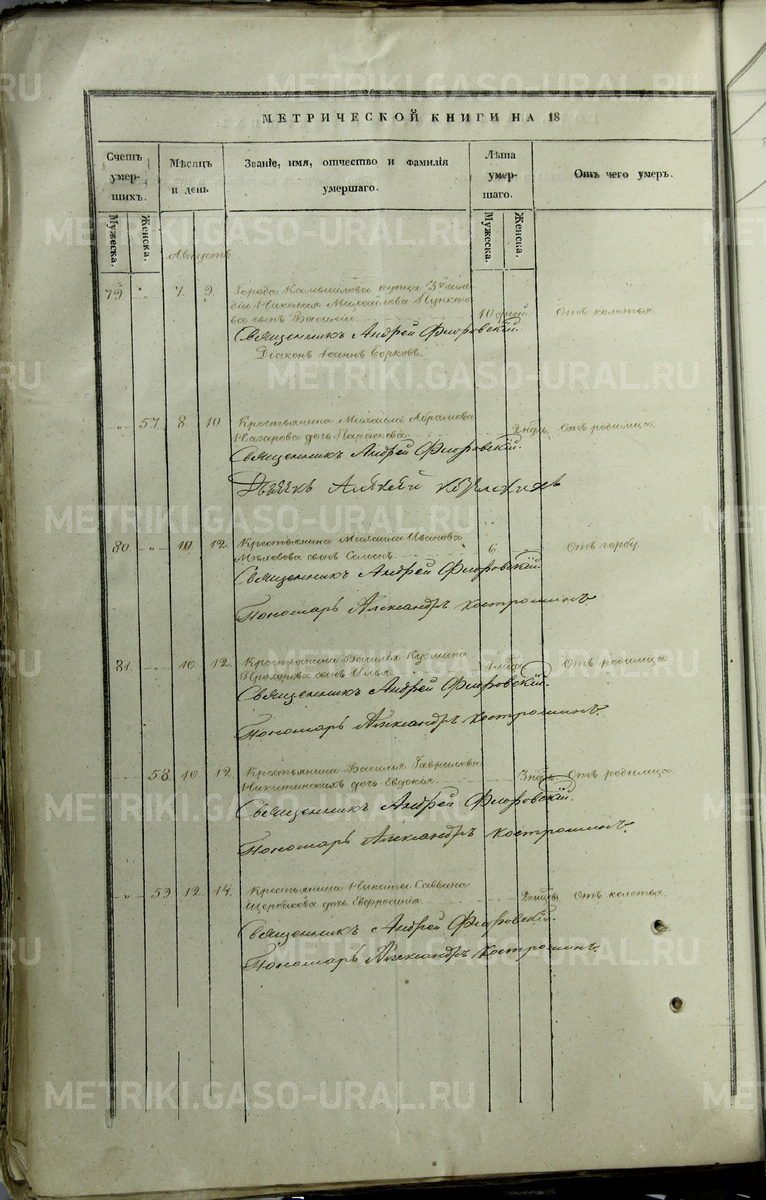 МЕТРИЧЕСКОЙ КНИГИ НА 18
Счетъ умерших.
Мѣсяцъ и день
Званіе, имя, отчество и фамилія умершаго.
Лѣта умершаго.
Отъ чего умеръ.
Мужеска. Женска.
Мужеска. Женска.
Августъ
79 " 7. 9. Города Камышлова купца 3й
Николая Михайлова
сынъ Василій 10 Отъ колотья
Священникъ Андрей Флоровскій.
Діаконъ Іоаннъ
" 57 8. 10. Крестьянина Михаила Абрамова
Назарова дочь Параскева 2 нед. Отъ родимца
Священникъ Андрей Флоровскій.
Дьячекъ Алексей
80 " 10 12 Крестьянина Михаила Иванова
сынъ Семенъ 6. Отъ горбу
Священникъ Андрей Флоровскій
Пономарь Александръ Костромминъ.
81. 10. 12 Крестьянина Василья Кузмина
Прохорова сынъ Илья Отъ родимца
Священникъ Андрей Флоровскій.
Пономарь Александръ Костромминъ.
58. 10. 12. Крестьянина Василія Гаврилова
Никитинскихъ дочь Евдокія 3 нед. Отъ родимца
Священникъ Андрей Флоровскій.
Пономарь Александръ Костромминъ.
" 59 12. 14. Крестьянина Никиты Саввина
Щербакова дочь Евфросинія Отъ колотья
Священникъ Андрей Флоровскій.
Пономарь Александръ Костромминъ.
METRIKI.GASO-URAL.RU